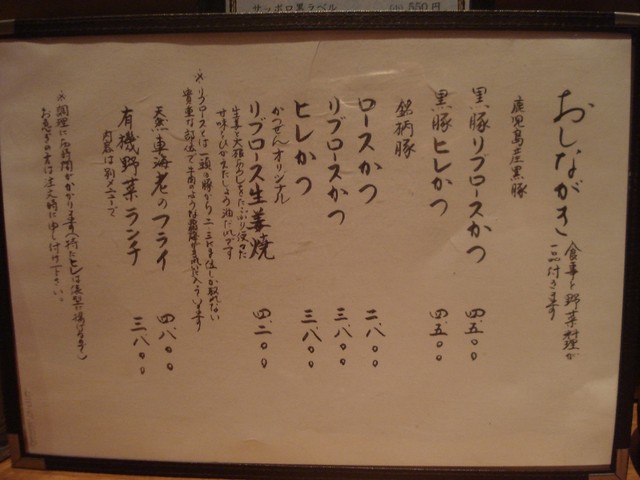 サッポロ黒ラベル 550円
おしながき 食事と野菜料理が一品付きます
鹿児島産黒豚
黒豚リブロースかつ 四、五〇〇
黒豚ヒレかつ 四、五〇〇
銘柄豚
ロースかつ 二、八〇〇
リブロースかつ 三、八〇〇
ヒレかつ 三、八〇〇
かつぜんオリジナル
リブロース生姜焼 四、二〇〇
生姜と大根おろしをたっぷり使った
サッパリひかえたしょう油だれです
※リブロースとは一頭の豚から二、三枚位しか取れない
貴重な部位で
天然車海老のフライ 四、八〇〇
有機野菜ランチ 三、八〇〇
内容は別メニューで
※調理にお時間がかかります
お急ぎの方は注文時に申し付け下さい。